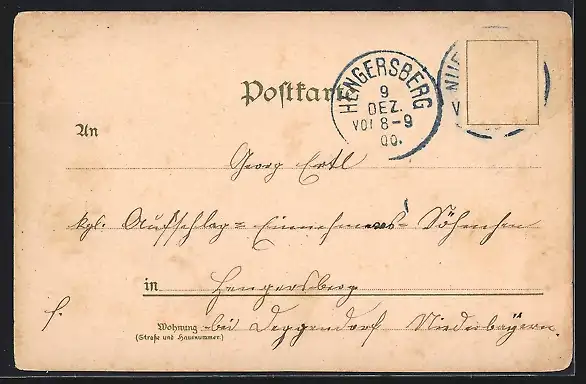 Postkarte
HENGERSBERG
9
DEZ.
VOR 8-9
00.
An
Georg Ertl
kgl. Aufschlag= Einnehmers- Söhnchen
in Hengersberg
f.
Wohnung bei Deggendorf Niederbayern.
(Straße und Hausnummer.)